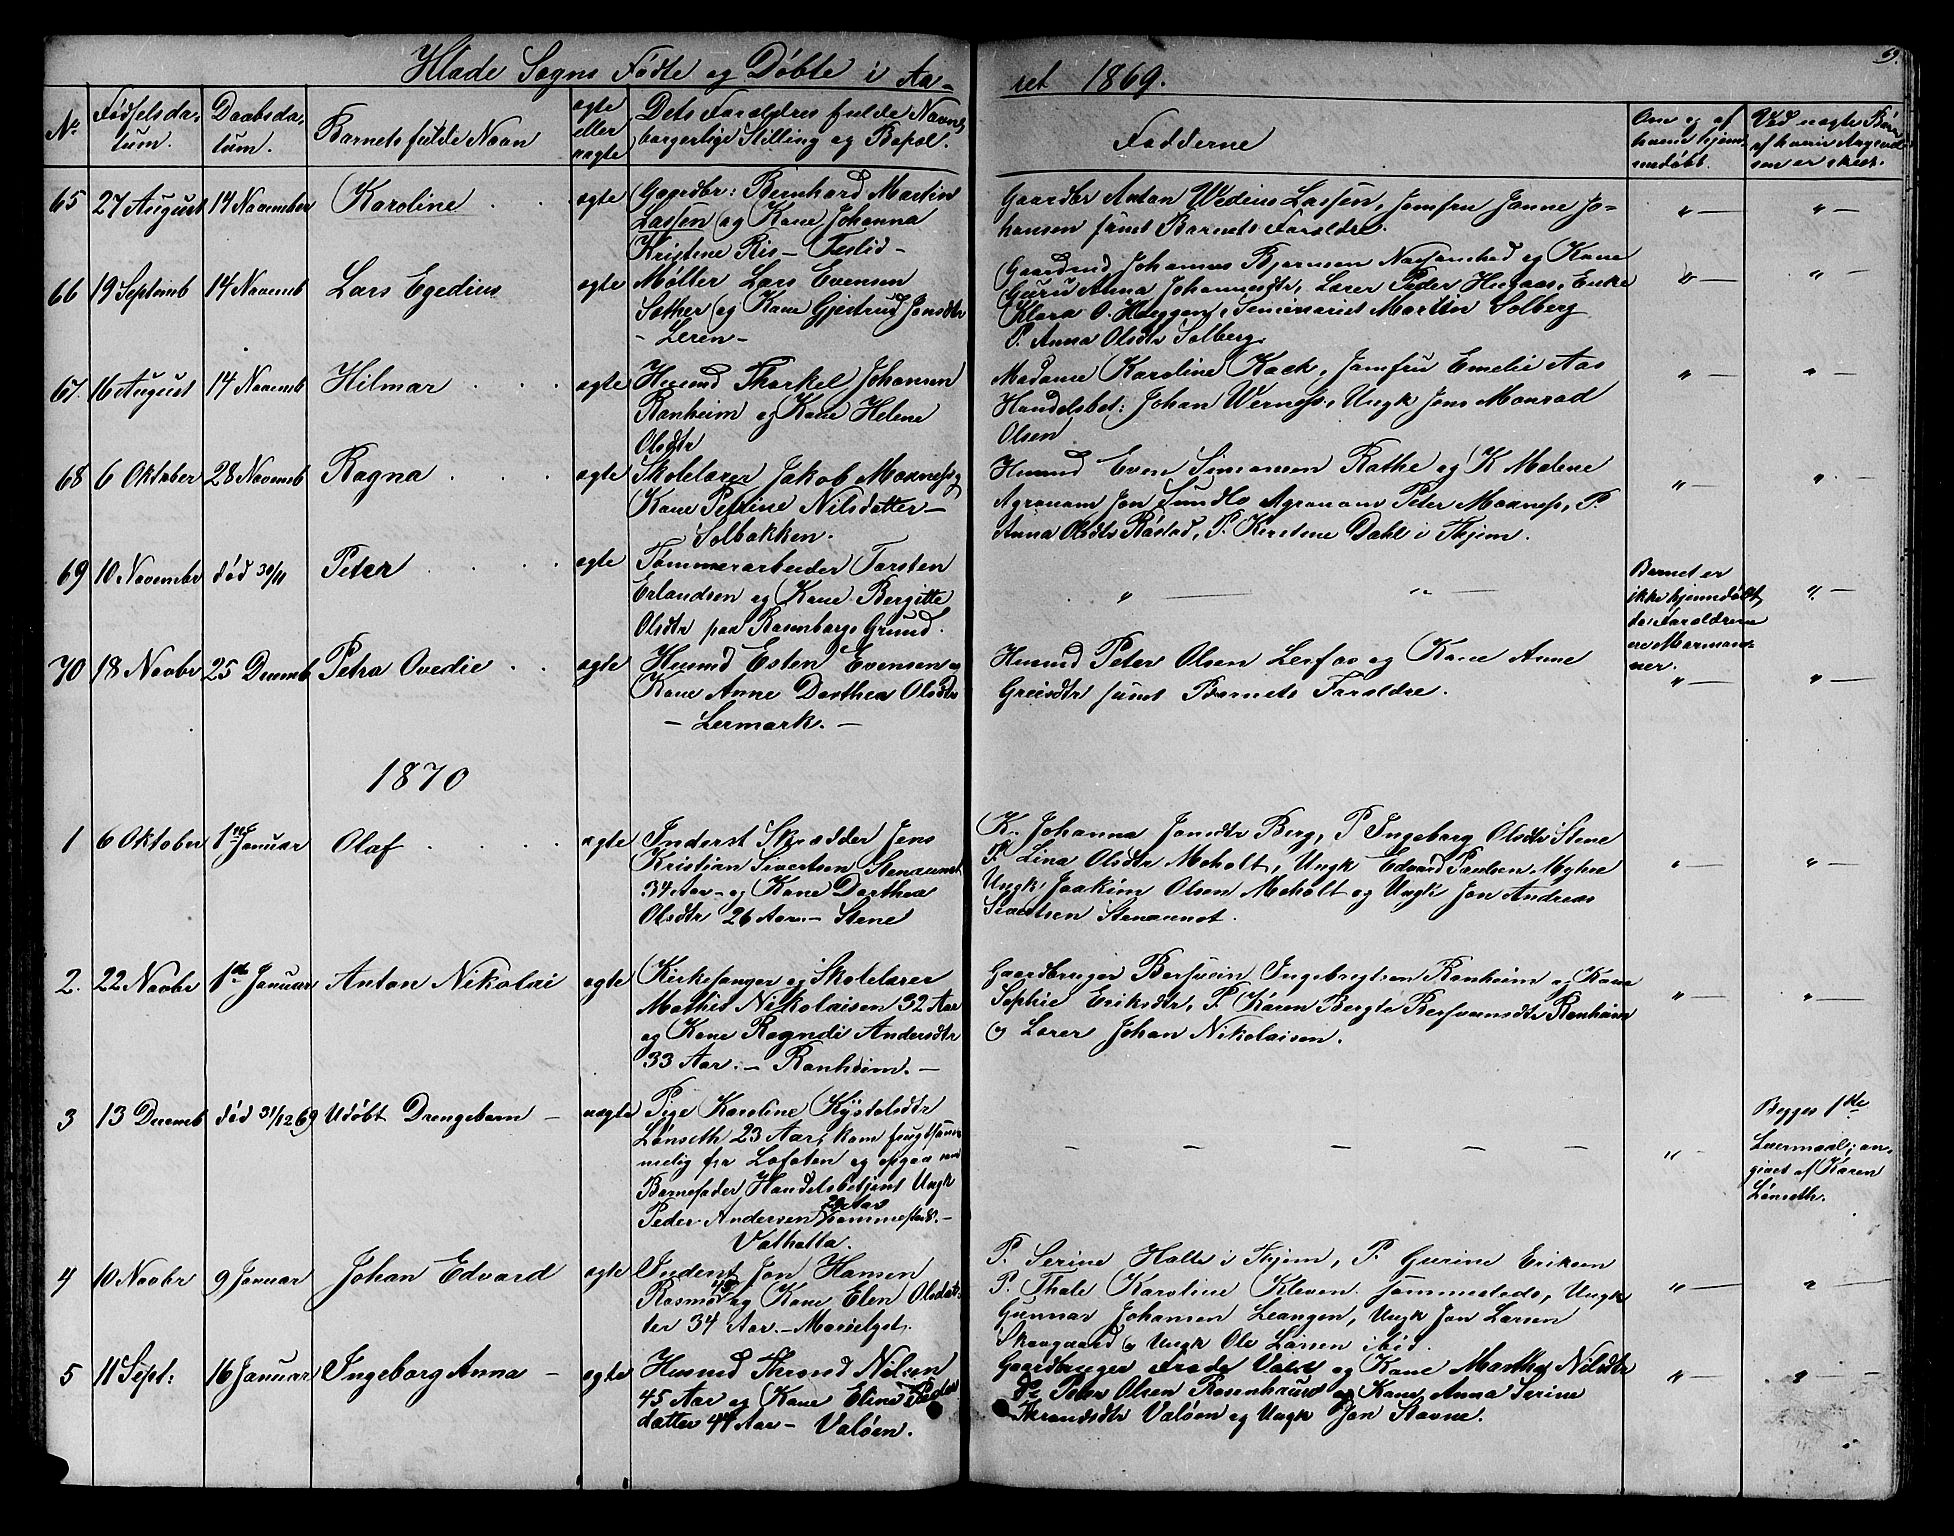 Hlade Sogns Fødte og Døbte i Aa-
ret 1869.
69.
No
Fødselsda-
tum.
Daabsda-
tum.
Barnets fulde Navn
ægte
eller
uægte
Dets Forældres fulde Navne,
borgerlige Stilling og Bopæl.
Fadderne
Om og af
hvem hjem-
medøbt.
Ved uægte Børn
af hvem Angivel-
sen er skeet.
65 27 August 14 November Karoline ægte
Gaardbr: Bernhard Martin
Lassen og Kone Johanna
Kristine Ris - Teslid -
Gaardbr Anton Wedius Lassen, Jomfru Janne Jo-
hansen samt Barnets Forældre.
66 19 Septemb 14 Novemb Lars Egedius ægte
Møller Lars Evensen
Sother og Kone Gjertrud Jonsdtr
- Leren -
Gaardmd Johannes Bjørnsen og Kone
Guru Anna Johannesdtr, Lærer Peder Hugaas, Enke
Klara O. Høeggen, Seminarist Martin Solberg
P. Anna Olsdtr Solberg.
67. 16 August 14 Novemb Hilmar ægte
Husmd Thorkel Johansen
Ranheim og Kone Helene
Olsdtr
Madame Karoline Koch, Jomfru Emelie Aas
Handelsbet: Johan Werness, Ungk Jens Monrad
Olsen
68 6 Oktober 28 Novemb Ragna ægte
Skolelærer Jakob Moxness og
Kone Petrine Nilsdatter -
Solbakken.
Husmd Even Simonsen Rathe og K Malene
Agronom Jon Sundlo Agronom Peter Moxness, P.
Anna Olsdtr Røstad, P. Kirstine Dahl i Thjem.
69 10 Novembr død 30/11 Peter ægte
Tømmerarbeider Torsten
Erlandsen og Kone Bergitte
Olsdtr paa Rosenborgs Grund.
Barnet er
ikke hjemdøbt,
da Forældrene
ere Mormo-
ner.
70 18 Novbr 25 Decemb Petra Ovedie ægte
Husmd Esten Evensen og
Kone Anne Dorthea Olsdtr
- Lermark. -
Husmd Peter Olsen Lerfos og Kone Anne
Greisdtr samt Barnets Forældre.
1870
1 6 Oktober 1ste Januar Olaf ægte
Inderst Skrædder Jens
Kristian Sivertsen Stenaunet
34 Aar - og Kone Dorthea
Olsdtr 26 Aar - Stene
K. Johanna Jonsdtr Berg, P Ingeborg Olsdtr Stene
P. Lina Olsdtr Moholt, Ungk Edvard Paulsen Myhre
Ungk, Joakim Olsen Moholt og Ungk Jon Andreas
Sivertsen Stenaunet.
2. 22 Novbr 1ste Januar Anton Nikolai ægte
Kirkesanger og Skolelærer
Mathis Nikolaisen 32 Aar
og Kone Ragndi Andersdtr
33 Aar. - Ranheim. -
Gaardbruger Bersvein Ingebrigtsen Ranheim og Kone
Sophie Eriksdtr, P. Karen Bergte Bersveinsdtr Ranheim
og Lærer Johan Nikolaisen.
3 13 Decemb død 31/12 69 Udøbt Drengebarn - uægte
Pige Karoline Kystolsdtr
Lønseth 23 Aar, kom frugtsom-
melig fra Lofoten og opgav som
Barnefader Handelsbetjent Ungk
Peder Andersen
Valhalla.
Begges 1ste
Leiermaal; an-
givet af Karen
Lønseth.
4 10 Novbr 9 Januar Johan Edvard ægte
Inderst Jon Hansen
Rosmo og Kone Elen Olsdat-
ter 34 Aar. -
P. Serine Halle i Thjem, P. Gurine Eriksen
P. Thale Karoline Kleven Sammesteds, Ungk
Gunnar Johansen Leangen, Ungk Jon Larsen
Skovgaard og Ungk Ole Larsen ibid.
5 11 Sept: 16 Januar Ingeborg Anna - ægte
Husmd Thrond Nilsen
45 Aar og Kone Eline Peders
datter 44 Aar - Valøen.
Gaardbruger Frode Valø og Kone Marthe Nilsdtr
Do Peter Olsen Rosenborg og Kone Anna Serine
Throndsdtr Valøen og Ungk Jon Stavne.